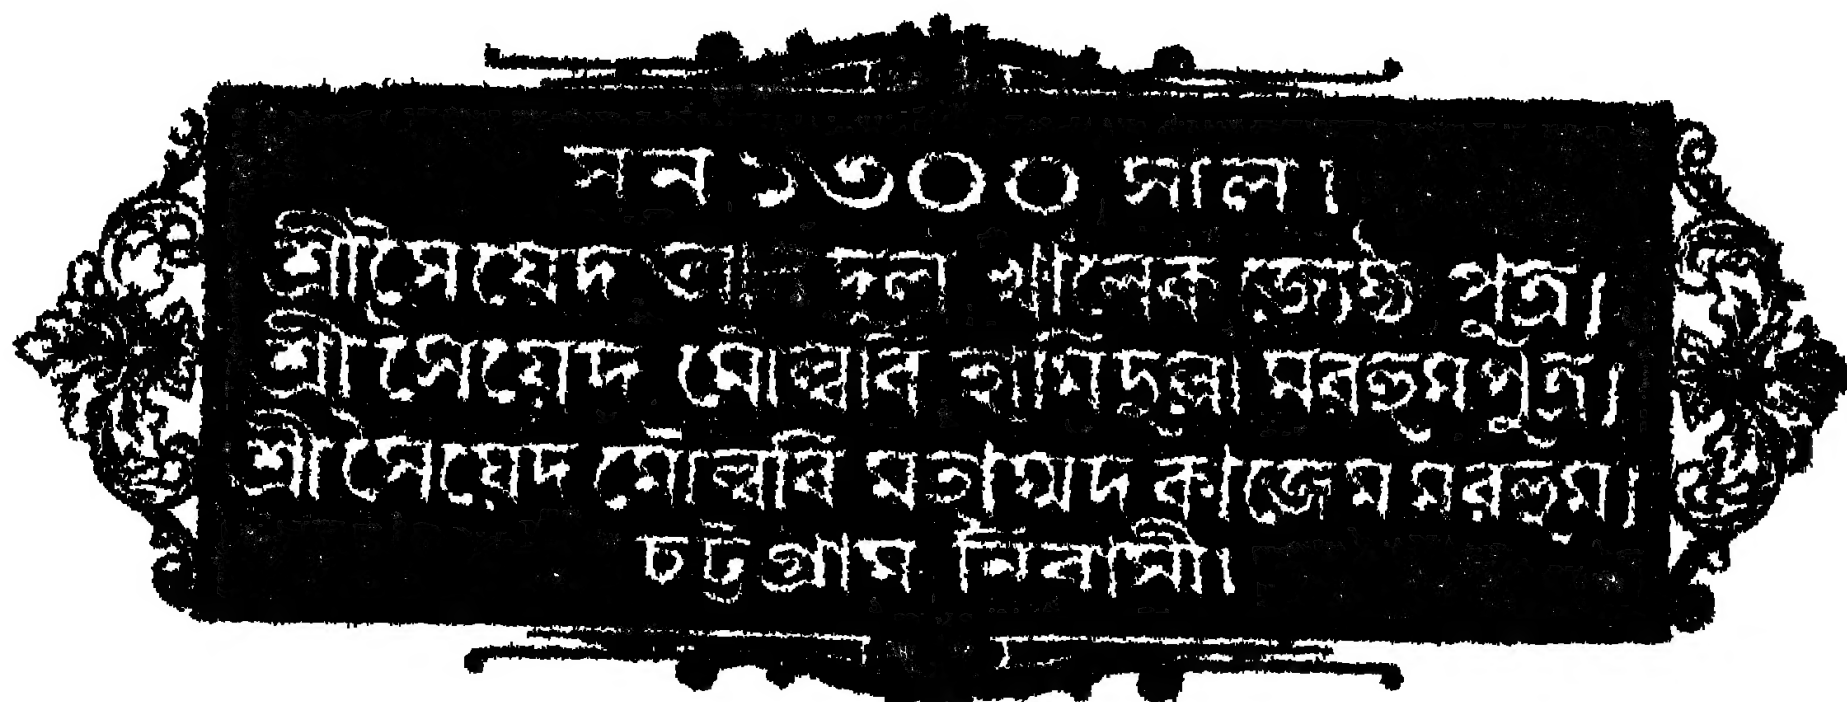 সন ১৩০০ সাল।
শ্রীসৈয়েদ দুল খালেক জ্যেষ্ঠ পুত্র।
শ্রীসৈয়েদ মৌল্লবি হামিদুল্লা মরহুম পুত্র।
শ্রীসৈয়েদ মৌল্লবি মহাম্মদ কাজেম মরহুম।
চট্টগ্রাম নিবাসী।